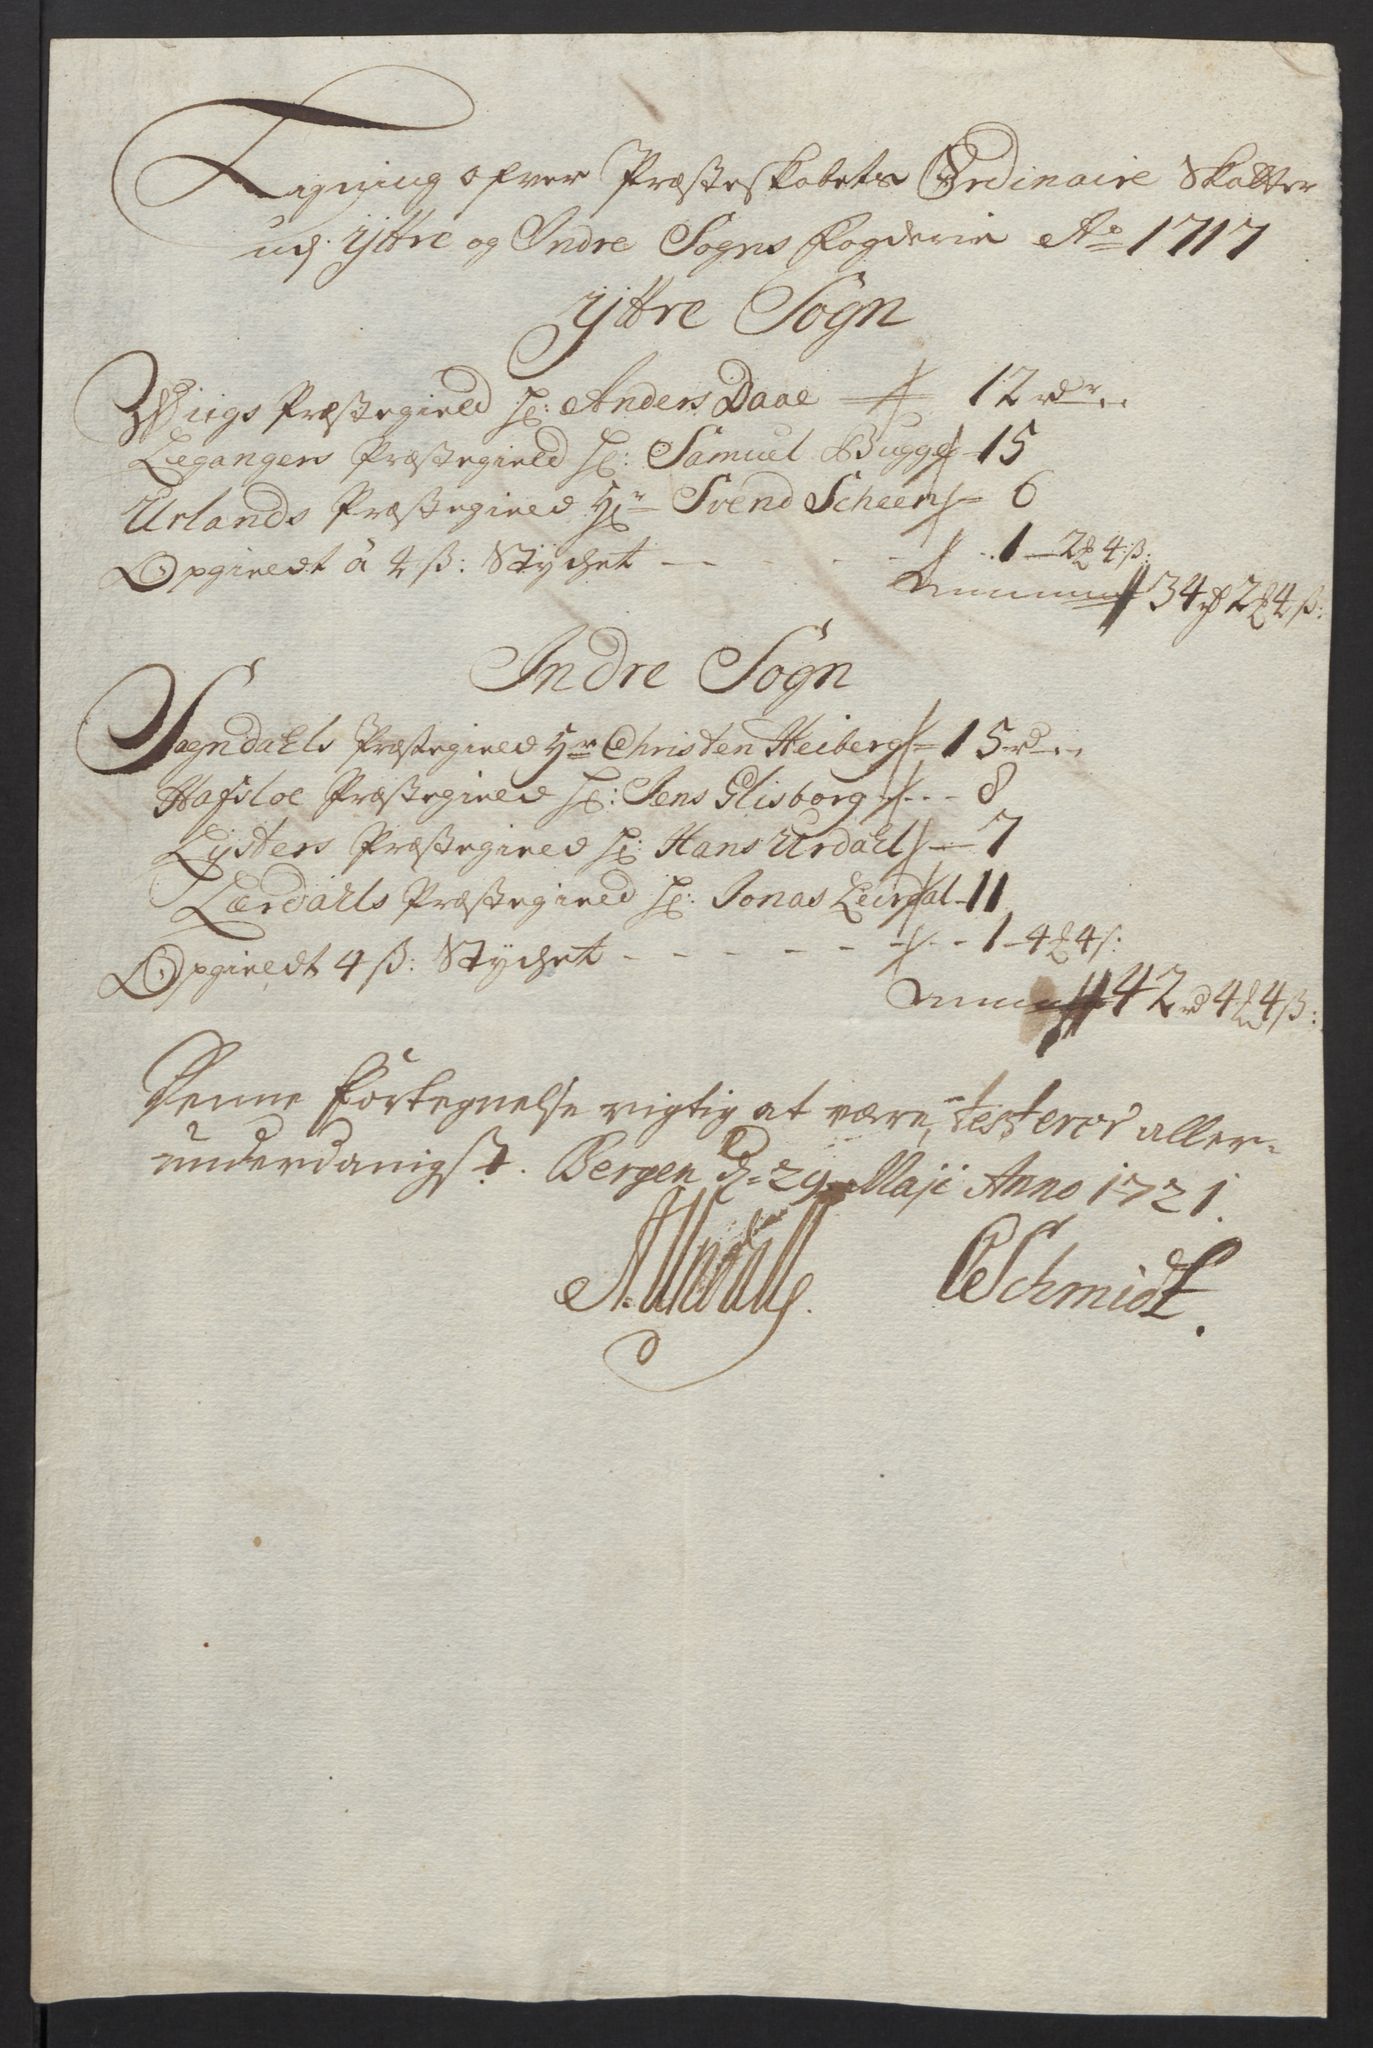 Ligning ofver Præsteskabets Ordinaire Skatter
ud. Yttre og Indre Sogns Fogderie Ao 1717
Yttre Sogn
Wiigs Præstegield H: Anders Daae 12 rdr
Legangers Præstegield H: Samuel Bugge 15
Urlands Præstegield Hr Svend Scheen 6
Opgieldt á 4 ß: Stychet - - - - 1 - 2 4 ß:
Summa 34 rd 2 4 ß:
Indre Sogn
Sogndahls Præstegield Hr Christen Heiberg 15 rd
Hafsloe Præstegield H: Jens Glisborg - - - 8
Lysters Præstegield H: Hans Urdahl 7
Lærdahls Præstegield H: Jonas Leirdal - 11
Opgieldt 4 ß: Stychet - - - - - - 1 - 4 4 ß:
Summa 42 rd 4 4 ß:
Denne Fortegnelse rigtig at være, testerer aller-
underdanigst. Bergen d= 29 Maji Anno 1721.
CSchmidt.